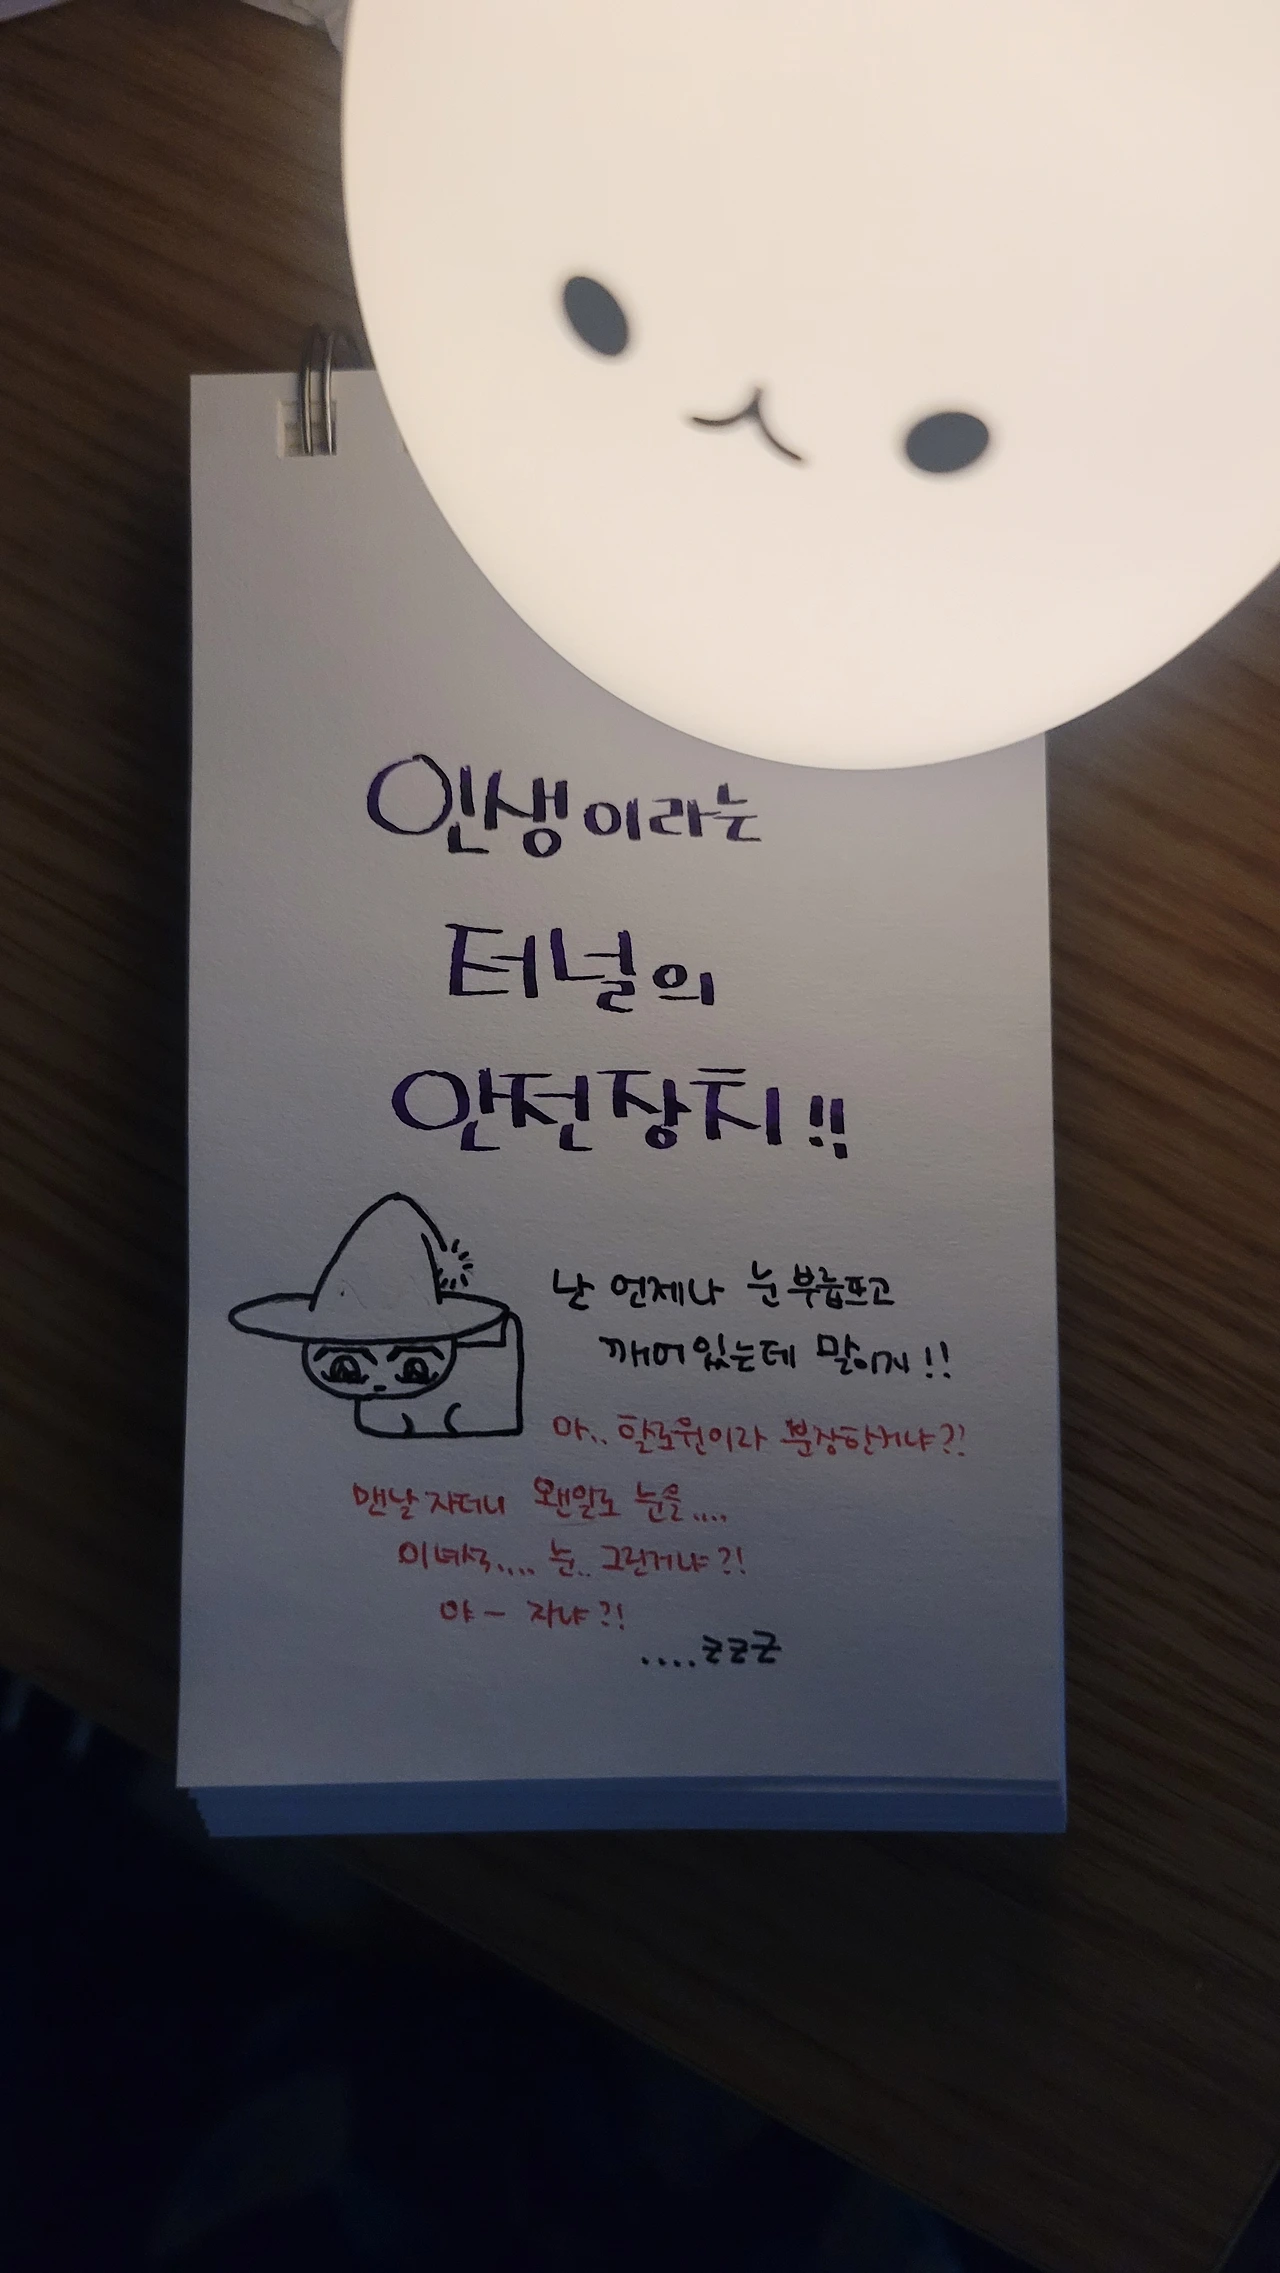 인생이라는
터널의
안전장치!!
난 언제나 눈 부릅뜨고
깨어있는데 말이지!!
아.. 할로윈이라 분장한거냐?!
맨날 자더니 왠일로 눈을....
이녀석.... 눈.. 그린거냐?!
야- 자냐?!
....zzZ